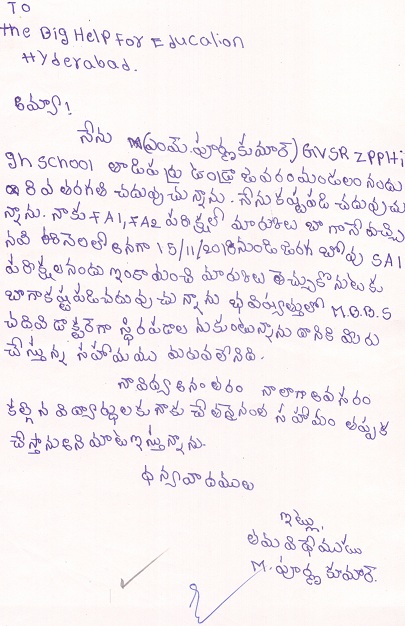 To
the Big Help For Education
Hyderabad.
అమ్మా!
నేను (యం. పూర్ణకుమార్) GVSR ZPPHi
gh school తాడిపర్రు ఉండ్రాజవరం మండలం నందు
8 వ తరగతి చదువుచున్నాను. నేను కష్టపడి చదువుచు
న్నాను. నాకు FA1, FA2 పరిక్షలో మారుకులు బాగానే వచ్చి
నవి ఈ నెలలో అనగా 15/11/2018 నుండి జరగబోవు SA1
పరిక్షల నందు ఇంకా మంచి మారుకులు తెచ్చుకొనుటకు
బాగా కష్టపడి చదువుచున్నాను భవిష్యత్తులో M.B.B.S
చదివి డాక్టర్‌గా స్థిరపడాలనుకుంటున్నాను దానికి మీరు
చేస్తున్న సహాయము మరువలేనిది.
నా విద్యా అనంతరం నాలాగా అవసరం
కల్గిన విద్యార్థులకు నాకు చేతనైనంత సహాయం తప్పక
చేస్తాను అని మాట ఇస్తున్నాను.
ధన్యవాదములు
ఇట్లు,
తమ విధేయుడు
M. పూర్ణ కుమార్.